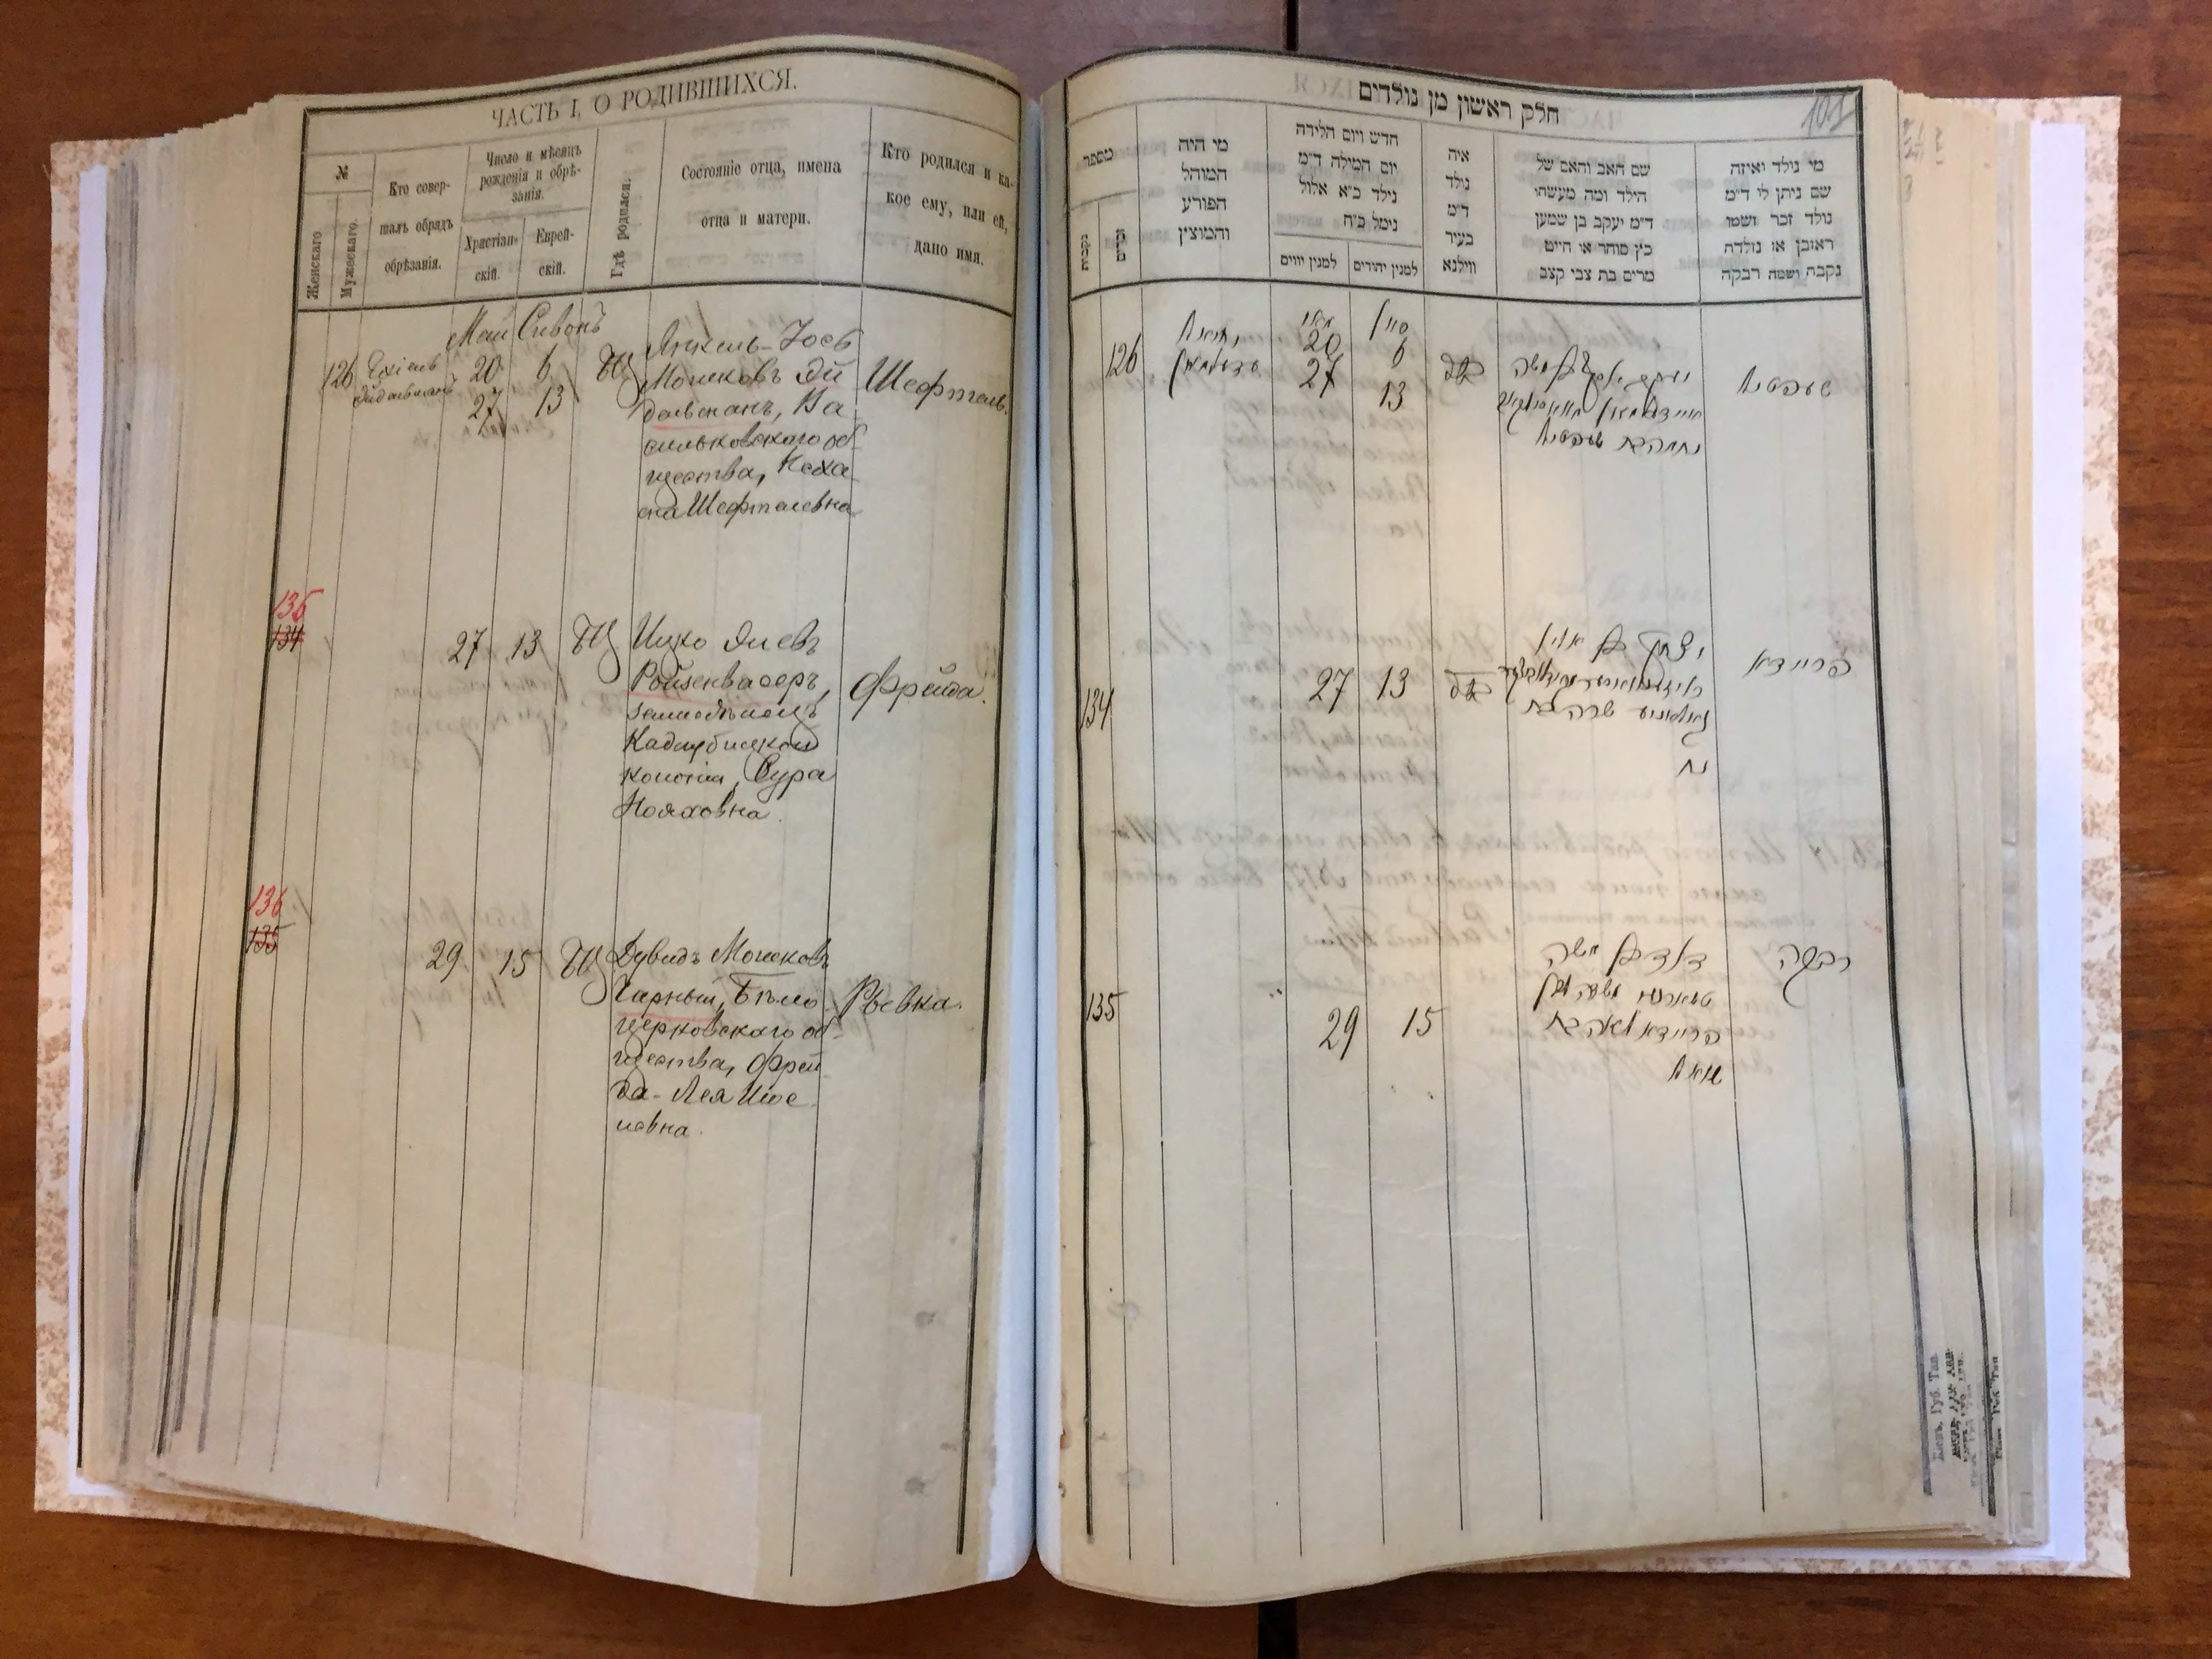 ЧАСТЬ I, О РОДИВШИХСЯ.
№
Женскаго
Мужескаго.
Кто совер-
шалъ обрядъ
обрѣзанія.
Число и мѣсяцъ
рожденія и обрѣ-
занія.
Христіан-
скій.
Еврей-
скій.
Гдѣ родился.
Состояніе отца, имена
отца и матери.
Кто родился и ка-
кое ему, или ей,
дано имя.
Май Сивонъ
126 Ехіель
20 6 БЦ
27 13
Янкель-Йось
Мошковъ Эй
дельманъ, Ва
сильковскаго об-
щества, Неха
ма Шефталевна
Шефтель.
135
134
27 13 БЦ
Ицко
Ройзенвасеръ,
колоніи, Сура
Нояховна.
Фрейда.
136
135
29 15 БЦ
Дувидъ Мошковъ
Чарный, Бѣло-
церковскаго об-
щества, Фрей
да-Лея Шое
ловна.
Рывка.
חלק ראשון מן נולדים
101
מספר
נקבות
זכרים
מי היה
המוהל
הפורע
והמוצין
חדש ויום הלידה
יום המילה ד"מ
נילד כ"א אלול
נימל כ"ח
למנין יוונים
למנין יהודים
איה
נולד
ד"מ
בעיר
ווילנא
שם האב והאם של
הילד ומה מעשהו
ד"מ יעקב בן שמען
כץ סוחר או חייט
מרים בת צבי קצב
מי נולד ואיזה
שם ניתן לו ד"מ
נולד זכר ושמו
ראובן או נולדת
נקבה ושמה רבקה
126
יחיאל
מאי
20
27
סיון
6
13
שעפטיל
134
27 13
יצחק בן
שרה בת
נח
פריידא
135
29 15
דוד בן משה
פריידא לאה בת
שאול
רבקה